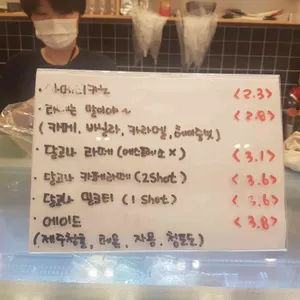 · 아메리카노 <2.3>
· 라떼는 말이야~ <2.8>
(카페, 바닐라, 카라멜, 헤이즐넛)
· 달고나 라떼 (에스프레소 X) <3.1>
· 달고나 카페라떼 (2shot) <3.6>
· 달고나 밀크티 (1 shot) <3.6>
· 에이드 <3.8>
(제주청귤, 레몬, 자몽, 청포도)